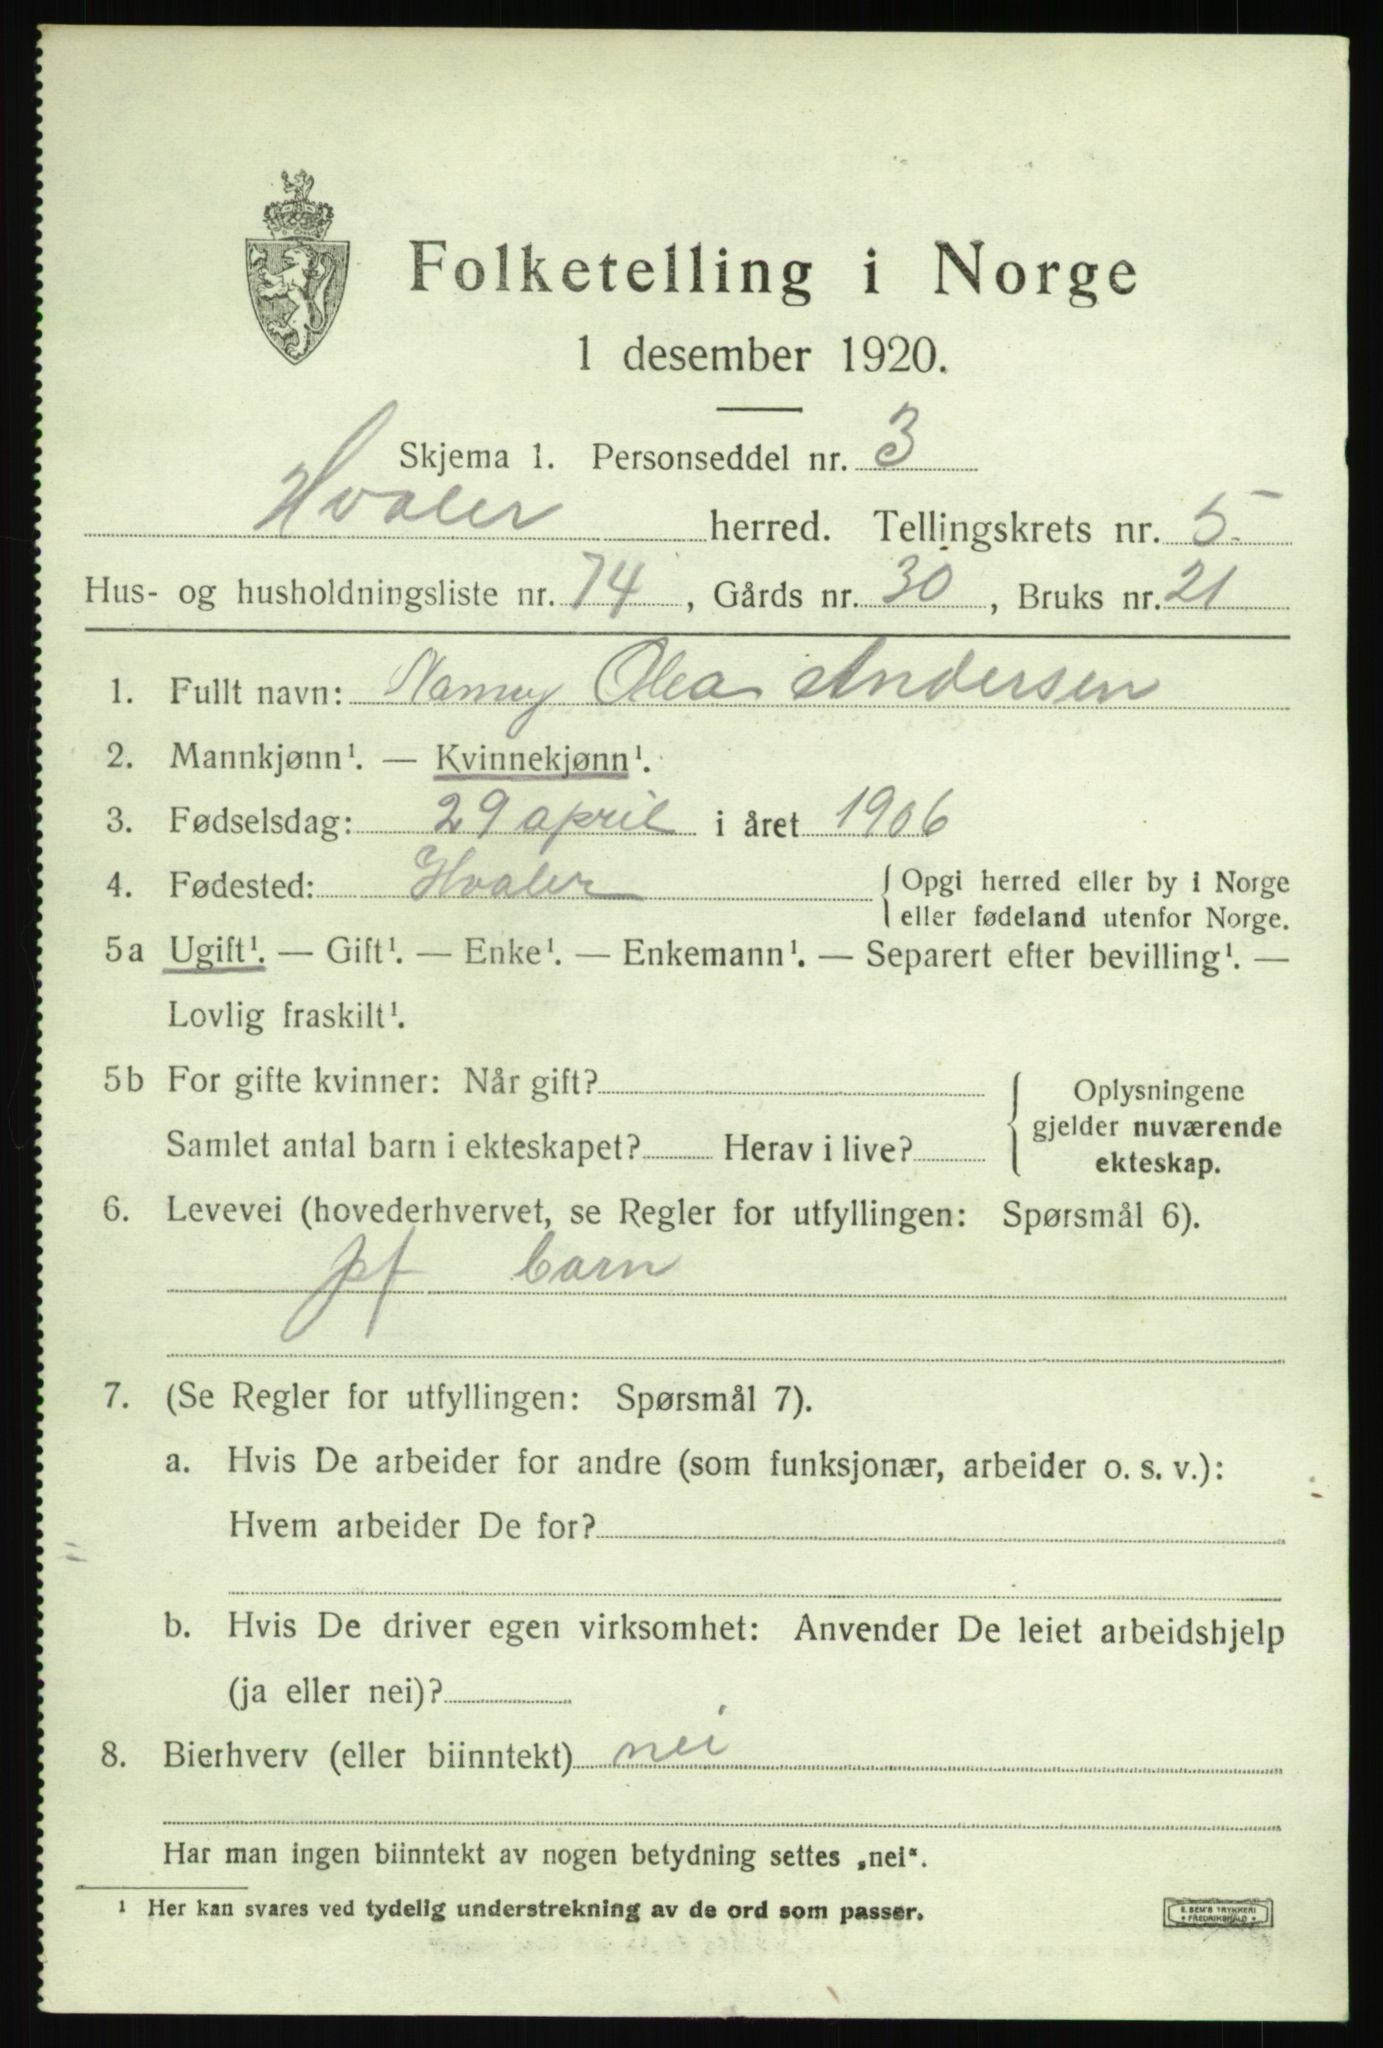 Folketelling i Norge
1 desember 1920.
Skjema 1. Personseddel nr. 3
Hvaler herred. Tellingskrets nr. 5
Hus- og husholdningsliste nr. 74, Gårds nr. 30, Bruks nr. 21
1. Fullt navn: Nanny Olea Andersen
2. Mannkjønn¹. — Kvinnekjønn¹.
3. Fødselsdag: 29 april i året 1906
4. Fødested: Hvaler { Opgi herred eller by i Norge
eller fødeland utenfor Norge.
5a Ugift¹. — Gift¹. — Enke¹. — Enkemann¹. — Separert efter bevilling¹. —
Lovlig fraskilt¹.
5b For gifte kvinner: Når gift? { Oplysningene
gjelder nuværende
Samlet antal barn i ekteskapet? Herav i live?
ekteskap.
6. Levevei (hovederhvervet, se Regler for utfyllingen: Spørsmål 6).
barn
7. (Se Regler for utfyllingen: Spørsmål 7).
a. Hvis De arbeider for andre (som funksjonær, arbeider o. s. v.):
Hvem arbeider De for?
b. Hvis De driver egen virksomhet: Anvender De leiet arbeidshjelp
(ja eller nei)?
8. Bierhverv (eller biinntekt) nei
Har man ingen biinntekt av nogen betydning settes „nei“.
¹ Her kan svares ved tydelig understrekning av de ord som passer.
E. SEM'S TRYKKERI
FREDRIKSHALD